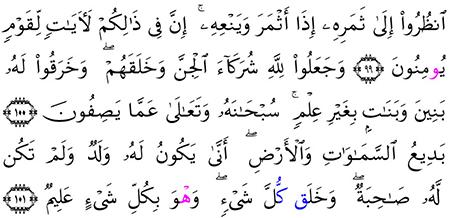 ٱنظُرُوا۟ إِلَىٰ ثَمَرِهِۦٓ إِذَآ أَثْمَرَ وَيَنْعِهِۦٓ ۚ إِنَّ فِى ذَٰلِكُمْ لَأٓيَـٰتٍ لِّقَوْمٍ
يُومِنُونَ ﴿٩٩﴾ وَجَعَلُوا۟ لِلَّهِ شُرَكَآءَ ٱلْجِنَّ وَخَلَقَهُمْ ۖ وَخَرَقُوا۟ لَهُۥ
بَنِينَ وَبَنَـٰتٍۭ بِغَيْرِ عِلْمٍ ۚ سُبْحَـٰنَهُۥ وَتَعَـٰلَىٰ عَمَّا يَصِفُونَ ﴿١٠٠﴾
بَدِيعُ ٱلسَّمَـٰوَٰتِ وَٱلْأَرْضِ ۖ أَنَّىٰ يَكُونُ لَهُۥ وَلَدٌ وَلَمْ تَكُن
لَّهُۥ صَـٰحِبَةٌ ۖ وَخَلَق كُّلَّ شَىْءٍ ۖ وَهْوَ بِكُلِّ شَىْءٍ عَلِيمٌ ﴿١٠١﴾